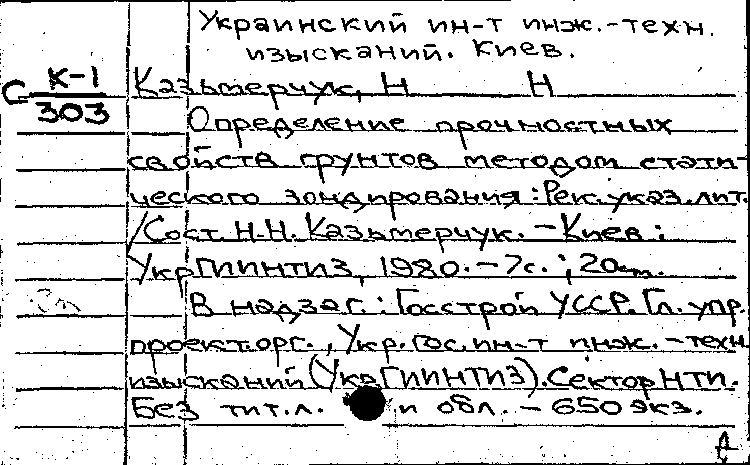 Украинский ин-т инж.-техн.
изысканий. Киев.
С К-1
303
Казьмерчук, Н Н
Определение прочностных
свойств грунтов методом стати-
ческого зондирования: Рек. указ. лит.
/Сост. Н.Н. Казьмерчук. - Киев:
УкрГИИНТИЗ, 1980. - 7с.; 20см.
В надзаг.: Госстрой УССР. Гл. упр.
проект. орг., Укр. гос. ин-т инж.-техн.
изысканий (УкрГИИНТИЗ). Сектор НТИ.
Без тит. л. и обл. - 650 экз.